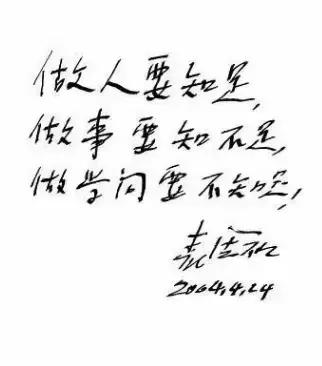 做人要知足,
做事要知不足,
做学问要不知足,
裘法祖
2004.4.24